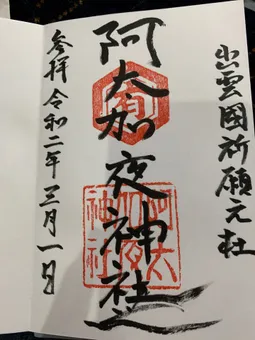 出雲國祈願元社
阿太加夜神社
有
阿太
加夜
神社
参拝 令和二年三月一日